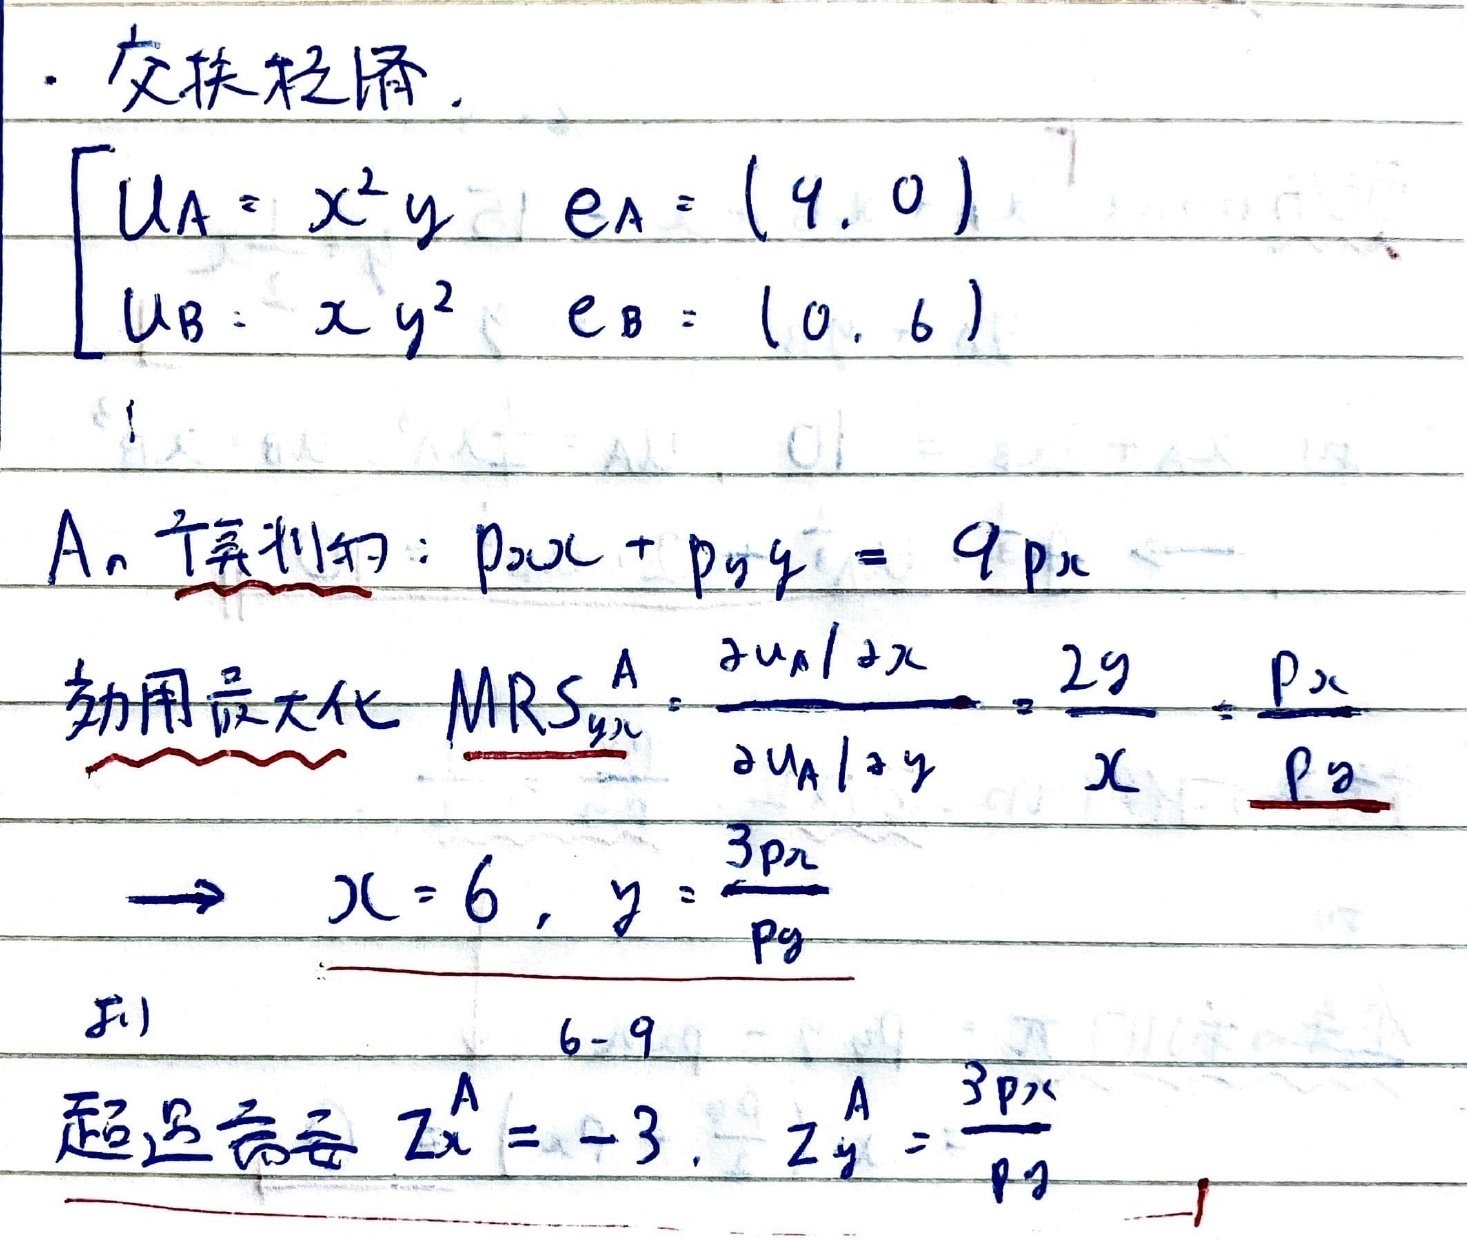 ・交換経済.
u_A = x²y  e_A = (9. 0)
u_B = xy²  e_B = (0. 6)
Aの予算制約: p_x x + p_y y = 9p_x
効用最大化 MRS^A_yx = (∂u_A/∂x)/(∂u_A/∂y) = 2y/x = p_x/p_y
→ x = 6, y = 3p_x/p_y
6-9
超過需要 Z_x^A = -3. Z_y^A = 3p_x/p_y